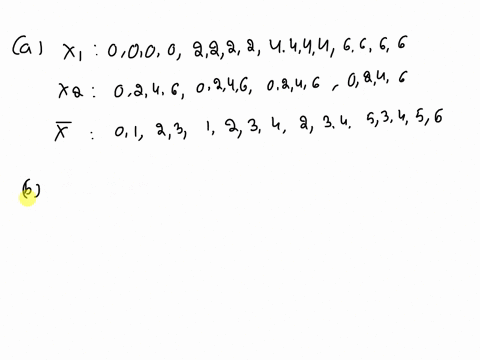 (a) X₁ : 0,0,0,0, 2,2,2,2, 4.4,4,4, 6.6,6,6
X2 : 0,2,4.6, 0,2,4,6, 0.2,4,6, 0,2,4,6
X̄ : 0,1, 2,3, 1, 2, 3, 4, 2, 3.4. 5,3,4,5,6
(b)